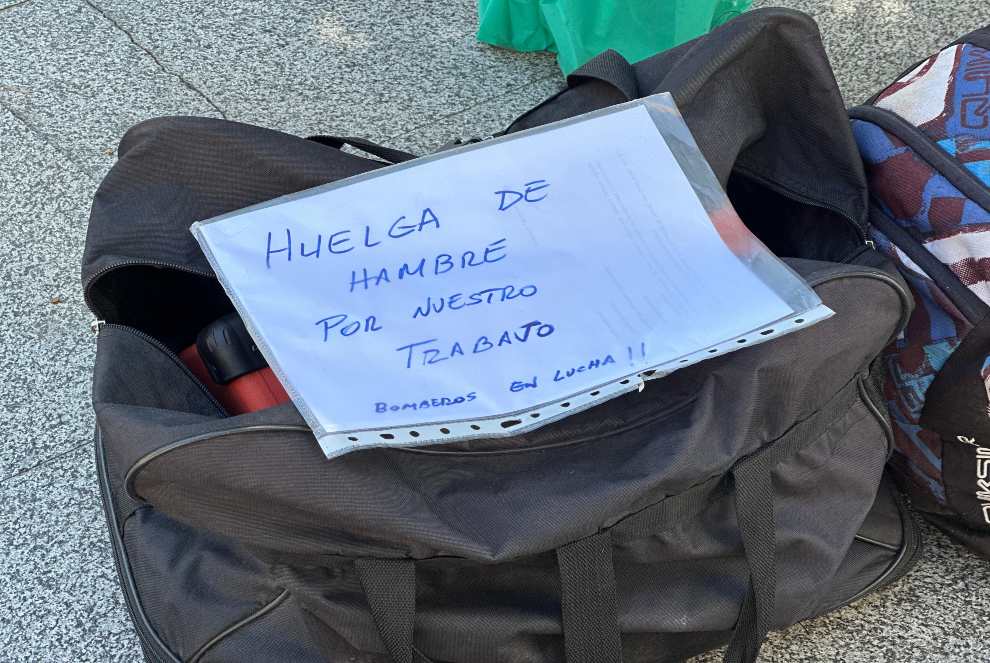 HUELGA DE
HAMBRE
POR NUESTRO
TRABAJO
BOMBEROS EN LUCHA!!